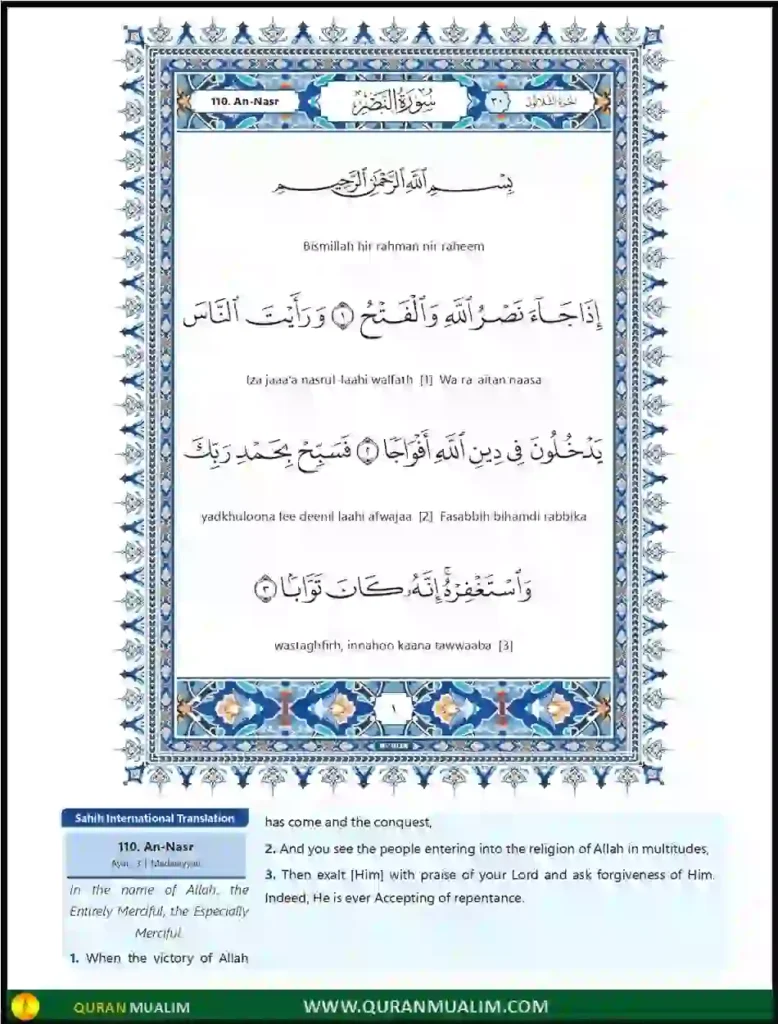 110. An-Nasr
سُورَةُ النَّصْرِ
٣٠
الجزء الثلاثون
بِسْمِ ٱللَّهِ ٱلرَّحْمَٰنِ ٱلرَّحِيمِ
Bismillah hir rahman nir raheem
إِذَا جَآءَ نَصْرُ ٱللَّهِ وَٱلْفَتْحُ ١ وَرَأَيْتَ ٱلنَّاسَ
Iza jaaa'a nasrul-laahi walfath [1] Wa ra-aitan naasa
يَدْخُلُونَ فِى دِينِ ٱللَّهِ أَفْوَاجًا ٢ فَسَبِّحْ بِحَمْدِ رَبِّكَ
yadkhuloona fee deenil laahi afwajaa [2] Fasabbih bihamdi rabbika
وَٱسْتَغْفِرْهُ ۚ إِنَّهُۥ كَانَ تَوَّابًۢا ٣
wastaghfirh, innahoo kaana tawwaaba [3]
١
Sahih International Translation
110. An-Nasr
Ayat: 3 | Madaniyyah
In the name of Allah, the
Entirely Merciful, the Especially
Merciful.
1. When the victory of Allah
has come and the conquest,
2. And you see the people entering into the religion of Allah in multitudes,
3. Then exalt [Him] with praise of your Lord and ask forgiveness of Him.
Indeed, He is ever Accepting of repentance.
QURAN MUALIM
WWW.QURANMUALIM.COM